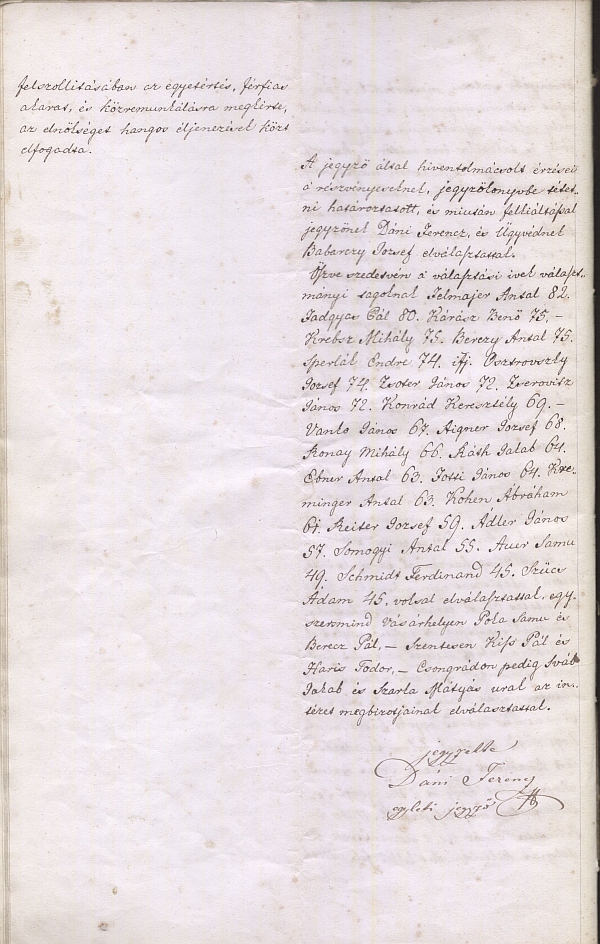 felszollitásában az egyetértés, férfias
akarat, és közremunkálásra megkérte,
az elnökséget hangos éljenezések közt
elfogadta.
A jegyző által hiventolmácsolt érzései
a részvényeseknek, jegyzőkönyvbe tétet-
ni határoztatott, és miután felkiáltással
jegyzőnek Dáni Ferencz, és Ügyvédnek
Babarczy Jozsef elválasztattak.
Öszve szedetvén a választási ivek választ-
mányi tagoknak Felmajer Antal 82.
Gadgyas Pál 80. Kárász Benő 75, –
Krebsz Mihály 75. Berczy Antal 75.
Sperlák Endre 74. ifj. Osztrovszky
Jozsef 74. Zsoter János 72. Zserovitz
János 72. Konrád Keresztély 69. –
Vanko János 67. Aigner Jozsef 68.
Ronay Mihály 66. Ráth Jakab 64.
Ebner Antal 63. Jossi János 64. Kre-
minger Antal 63. Kohen Ábrahám
61. Reiser Jozsef 59. Ádler János
57. Somogyi Antal 55. Auer Samu
49. Schmidt Ferdinand 45. Szücs
Ádám 45. voksal elválasztattak, egy-
szersmind Vásárhelyen Pola Samu és
Berecz Pál, – Szentesen Kiss Pál és
Haris Todor, – Csongrádon pedig Sváb
Jakab és Szarka Mátyás urak az in-
tézet megbizottjainak elválasztattak.
jegyzette
Dáni Ferencz
egyleti jegyző